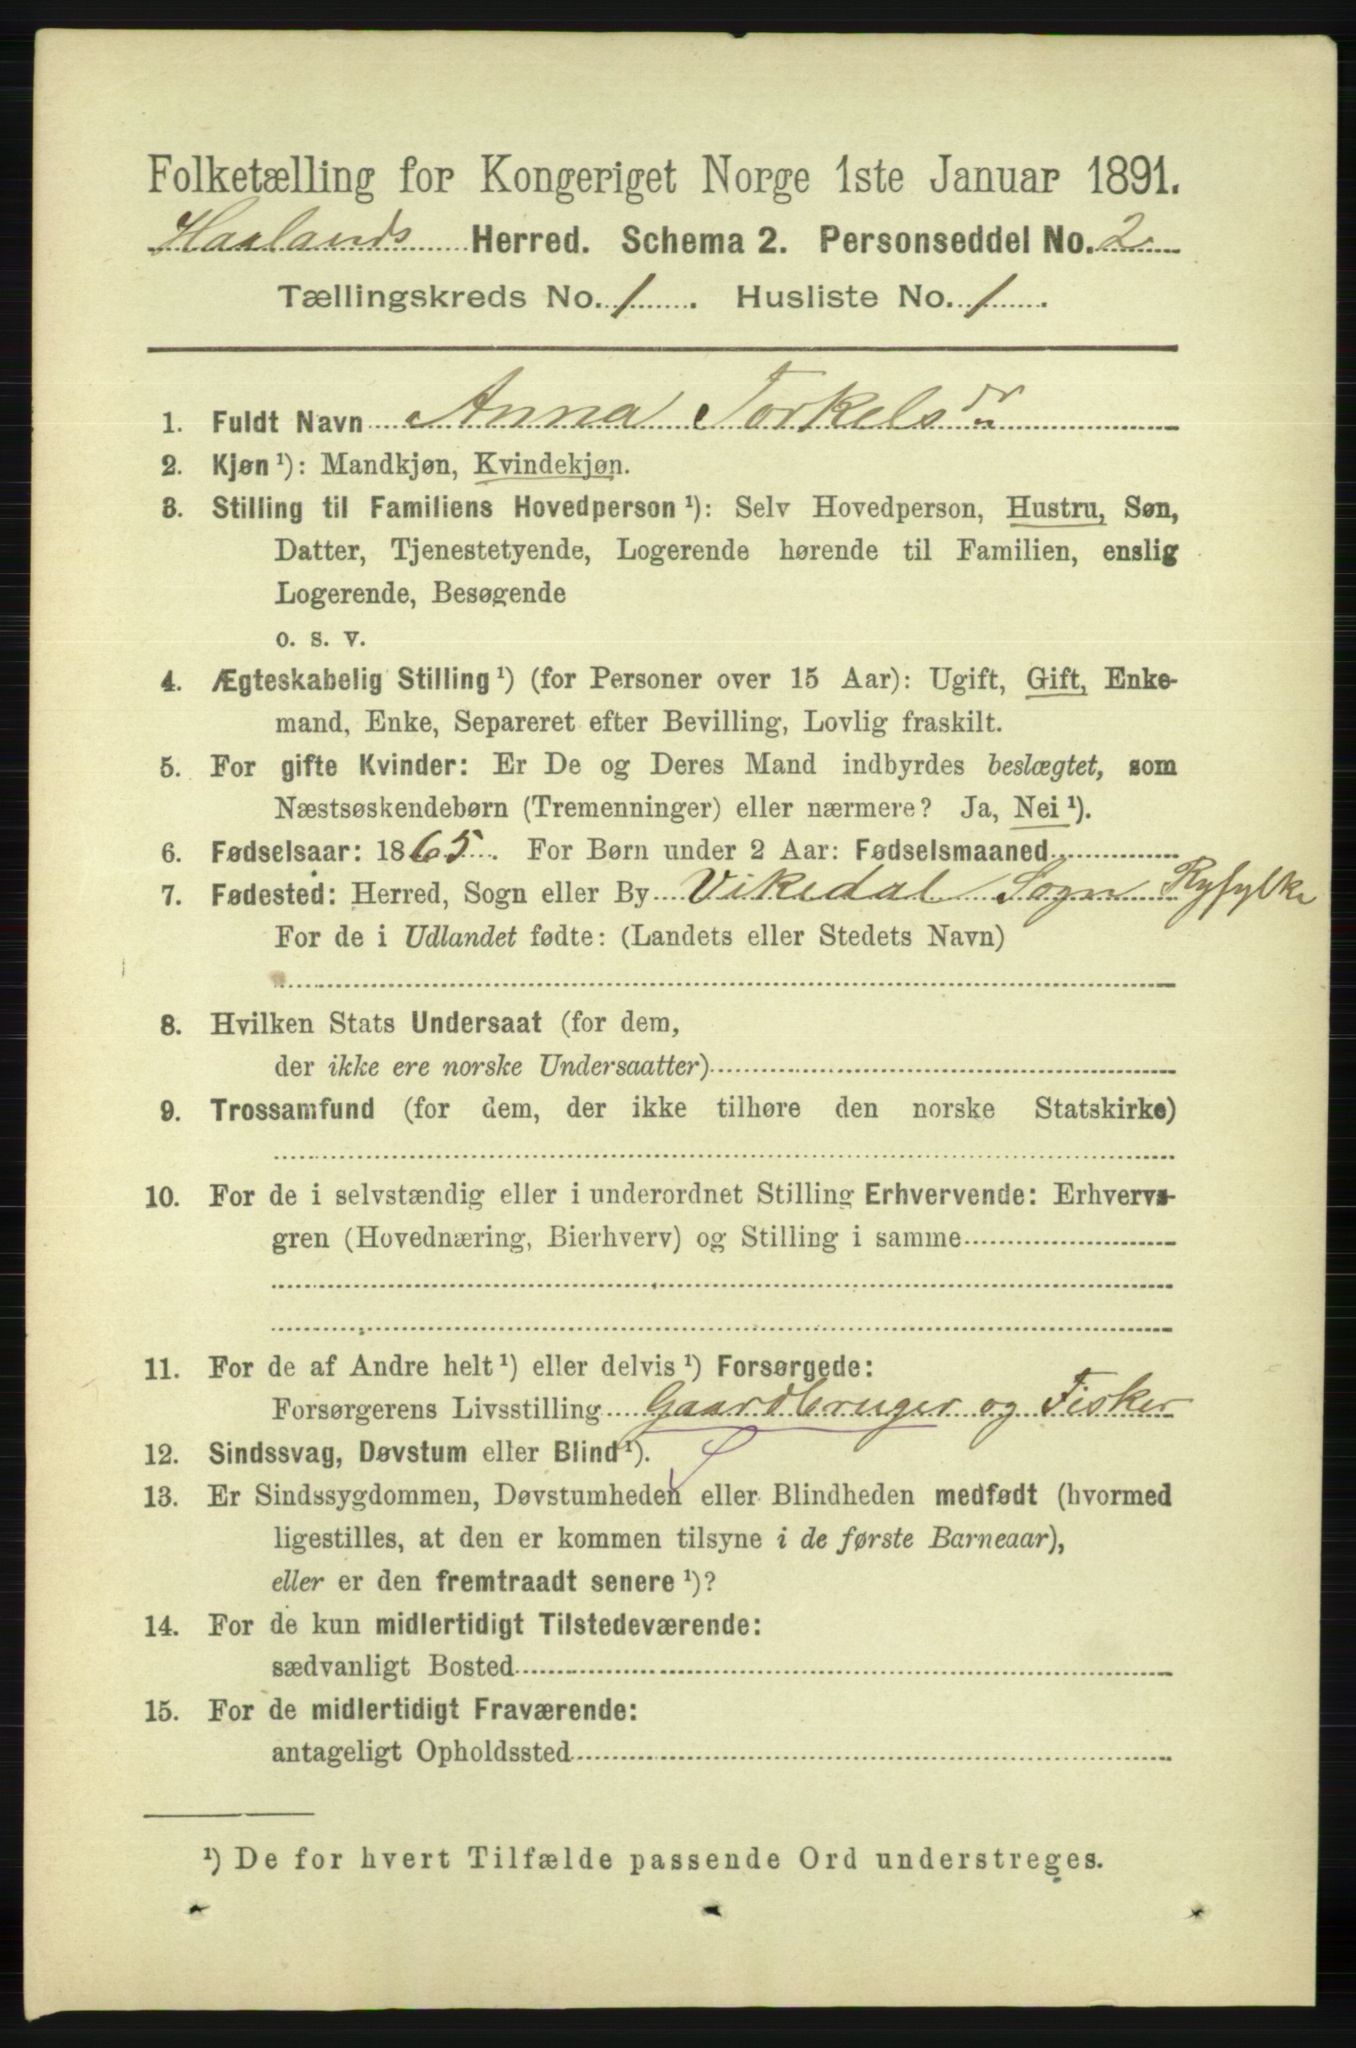 Folketælling for Kongeriget Norge 1ste Januar 1891.
Haalands Herred. Schema 2. Personseddel No. 2
Tællingskreds No. 1. Husliste No. 1.
1. Fuldt Navn Anna Torkelsdr
2. Kjøn ¹): Mandkjøn, Kvindekjøn.
3. Stilling til Familiens Hovedperson ¹): Selv Hovedperson, Hustru, Søn,
Datter, Tjenestetyende, Logerende hørende til Familien, enslig
Logerende, Besøgende
o. s. v.
4. Ægteskabelig Stilling ¹) (for Personer over 15 Aar): Ugift, Gift, Enke-
mand, Enke, Separeret efter Bevilling, Lovlig fraskilt.
5. For gifte Kvinder: Er De og Deres Mand indbyrdes beslægtet, som
Næstsøskendebørn (Tremenninger) eller nærmere? Ja, Nei ¹).
6. Fødselsaar: 1865. For Børn under 2 Aar: Fødselsmaaned
7. Fødested: Herred, Sogn eller By Vikedal Sogn Ryfylke
For de i Udlandet fødte: (Landets eller Stedets Navn)
8. Hvilken Stats Undersaat (for dem,
der ikke ere norske Undersaatter)
9. Trossamfund (for dem, der ikke tilhøre den norske Statskirke)
10. For de i selvstændig eller i underordnet Stilling Erhvervende: Erhvervs-
gren (Hovednæring, Bierhverv) og Stilling i samme
11. For de af Andre helt ¹) eller delvis ¹) Forsørgede:
Forsørgerens Livsstilling Gaardbruger og Fisker
12. Sindssvag, Døvstum eller Blind ¹).
13. Er Sindssygdommen, Døvstumheden eller Blindheden medfødt (hvormed
ligestilles, at den er kommen tilsyne i de første Barneaar),
eller er den fremtraadt senere ¹)?
14. For de kun midlertidigt Tilstedeværende:
sædvanligt Bosted
15. For de midlertidigt Fraværende:
antageligt Opholdssted
¹) De for hvert Tilfælde passende Ord understreges.